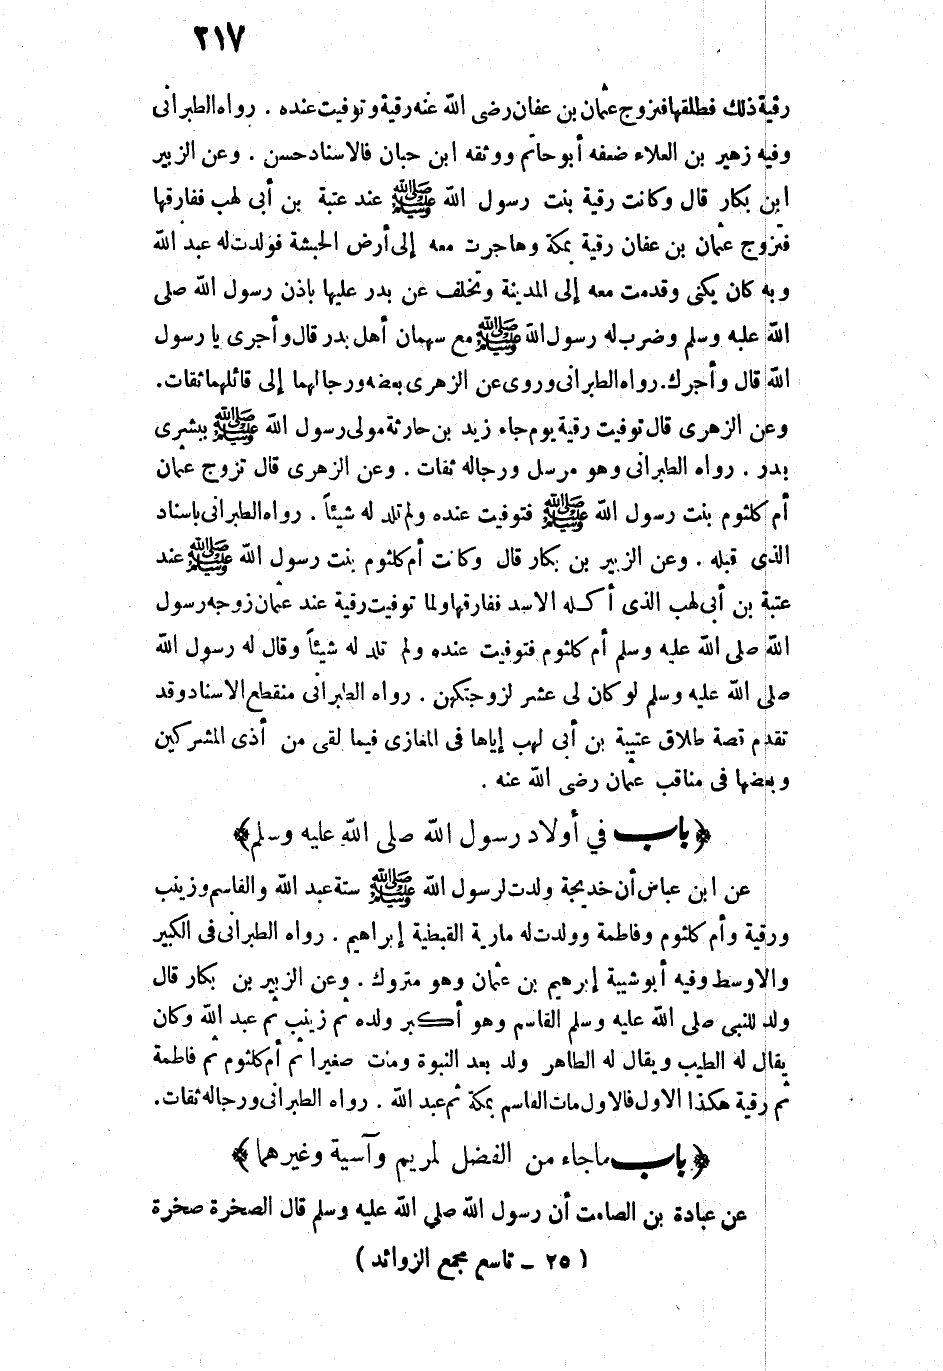 ٢١٧
رقية ذلك فطلقها فتزوج عثمان بن عفان رضى الله عنه رقية وتوفيت عنده . رواه الطبرانى
وفيه زهير بن العلاء ضعفه أبو حاتم ووثقه ابن حبان فالاسناد حسن . وعن الزبير
ابن بكار قال وكانت رقية بنت رسول الله ﷺ عند عتبة بن أبى لهب ففارقها
فتزوج عثمان بن عفان رقية بمكة وهاجرت معه إلى أرض الحبشة فولدت له عبد الله
وبه كان يكنى وقدمت معه إلى المدينة وتخلف عن بدر عليها باذن رسول الله صلى
الله عليه وسلم وضرب له رسول الله ﷺ مع سهمان أهل بدر قال وأجرى يا رسول
الله قال وأجرك. رواه الطبرانى وروى عن الزهرى بعضه ورجالهما إلى قائلهما ثقات.
وعن الزهرى قال توفيت رقية يوم جاء زيد بن حارثة مولى رسول الله ﷺ ببشرى
بدر . رواه الطبرانى وهو مرسل ورجاله ثقات . وعن الزهرى قال تزوج عثمان
أم كلثوم بنت رسول الله ﷺ فتوفيت عنده ولم تلد له شيئاً . رواه الطبرانى باسناد
الذى قبله . وعن الزبير بن بكار قال وكانت أم كلثوم بنت رسول الله ﷺ عند
عتبة بن أبى لهب الذى أكله الاسد ففارقها ولما توفيت رقية عند عثمان زوجه رسول
الله صلى الله عليه وسلم أم كلثوم فتوفيت عنده ولم تلد له شيئاً وقال له رسول الله
صلى الله عليه وسلم لو كان لى عشر لزوجتكهن . رواه الطبرانى منقطع الاسناد وقد
تقدم قصة طلاق عتيبة بن أبى لهب إياها فى المغازى فيما لقى من أذى المشركين
وبعضها فى مناقب عثمان رضى الله عنه .
﴿باب في أولاد رسول الله صلى الله عليه وسلم﴾
عن ابن عباس أن خديجة ولدت لرسول الله ﷺ ستة عبد الله والقاسم وزينب
ورقية وأم كلثوم وفاطمة وولدت له مارية القبطية إبراهيم . رواه الطبرانى فى الكبير
والاوسط وفيه أبو شيبة إبرهيم بن عثمان وهو متروك . وعن الزبير بن بكار قال
ولد للنبى صلى الله عليه وسلم القاسم وهو أكبر ولده ثم زينب ثم عبد الله وكان
يقال له الطيب ويقال له الطاهر ولد بعد النبوة ومات صغيرا ثم أم كلثوم ثم فاطمة
ثم رقية هكذا الاول فالاول مات القاسم بمكة ثم عبد الله . رواه الطبرانى ورجاله ثقات.
﴿باب ما جاء من الفضل لمريم وآسية وغيرهما﴾
عن عبادة بن الصامت أن رسول الله صلى الله عليه وسلم قال الصخرة صخرة
( ٢٥ ـ تاسع مجمع الزوائد )